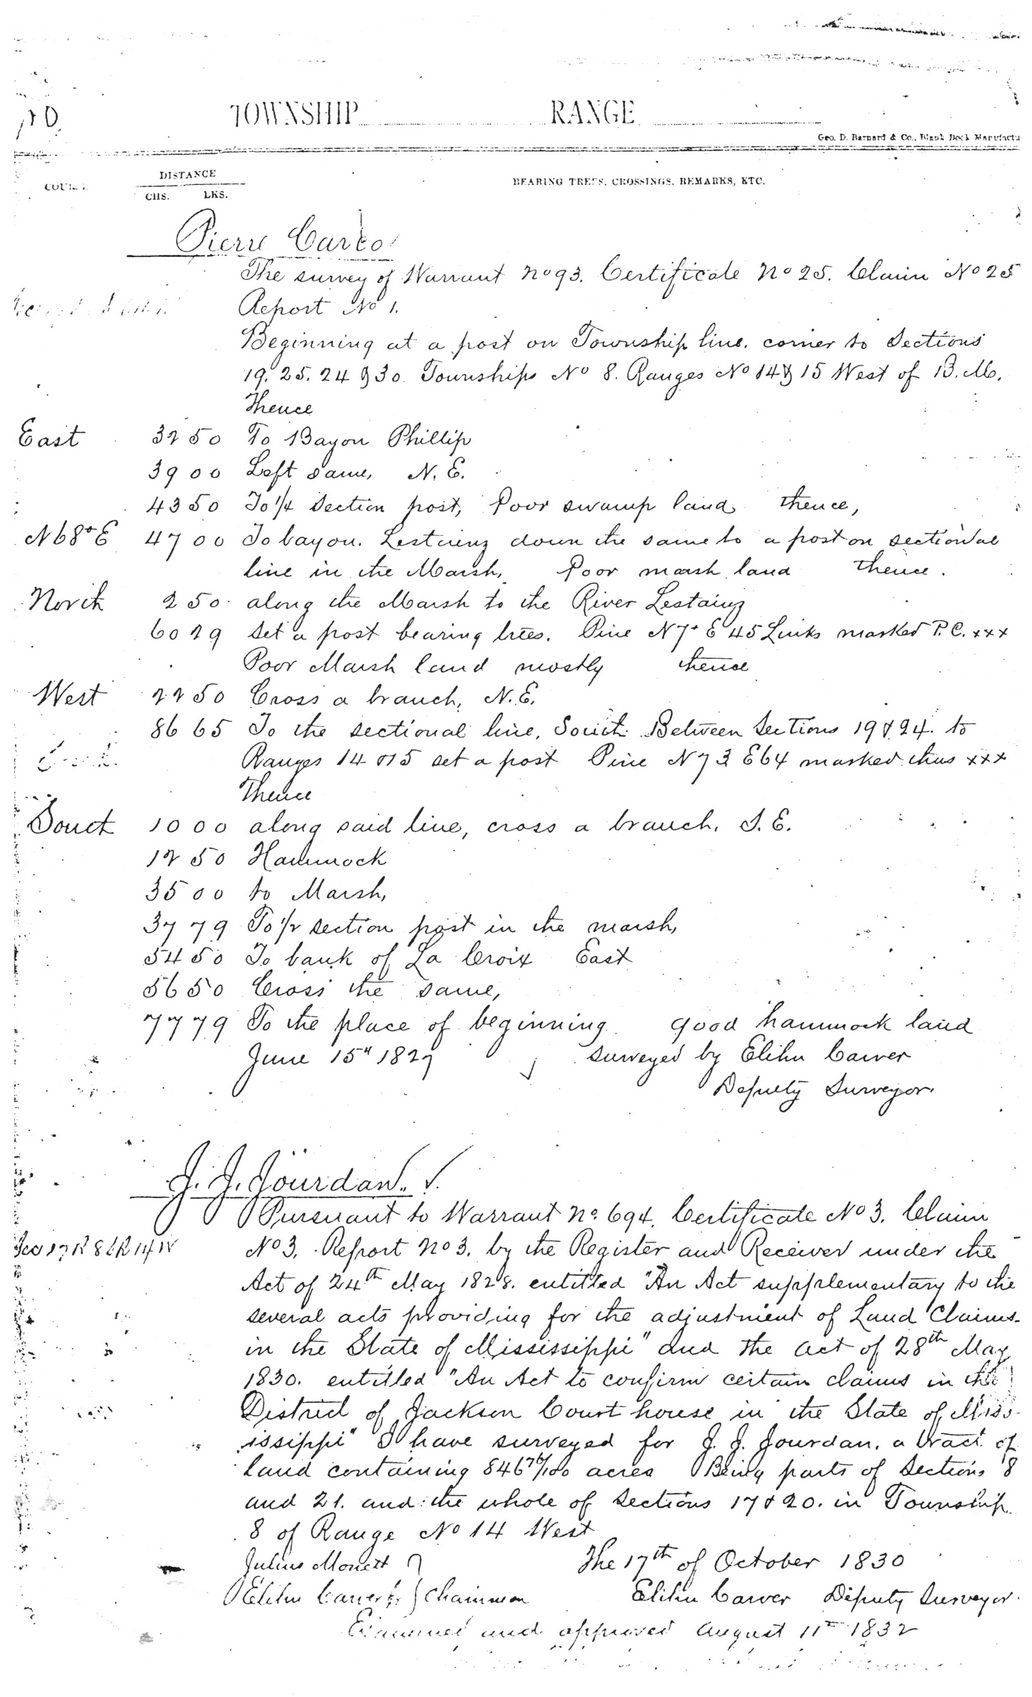 TOWNSHIP RANGE
Geo. D. Barnard & Co., Blank Book Manufactu
DISTANCE
CHS. LKS.
BEARING TREES, CROSSINGS, REMARKS, ETC.
Pierre Carco
The survey of Warrant No 93. Certificate No 25. Claim No 25
Report No 1.
Beginning at a post on Township line, corner to Sections
19. 25. 24 & 30. Townships No 8. Ranges No 14 & 15 West of B. M.
Thence
East 32 50 To Bayou Phillip
39 00 Left same, N. E.
43 50 To 1/4 section post, Poor swamp land thence,
N 68° E 47 00 To bayou. Lestainz down the same to a post on sectional
line in the Marsh. Poor marsh land thence.
North 2 50 along the Marsh to the River Lestainz
60 29 set a post bearing trees. Pine N 7° E 45 Links marked P. C. xxx
Poor Marsh land mostly thence
West 22 50 Cross a branch, N. E.
86 65 To the sectional line, South Between Sections 19 & 24. to
Ranges 14 & 15 set a post Pine N 73 E 64 marked thus xxx
Thence
South 10 00 along said line, cross a branch. S. E.
12 50 Hammock
35 00 to Marsh,
37 79 To 1/2 section post in the marsh,
54 50 To bank of La Croix East
56 50 Cross the same,
77 79 To the place of beginning good hammock land
June 15th 1827 surveyed by Elihu Carver
Deputy Surveyor.
J. J. Jourdan.
Pursuant to Warrant No. 694. Certificate No 3. Claim
Sec 17 T 8 R 14 W No 3. Report No 3. by the Register and Receiver under the
Act of 24th May 1828. entitled "An Act supplementary to the
several acts providing for the adjustment of Land Claims
in the State of Mississippi" and the act of 28th May
1830. entitled "An Act to confirm certain claims in the
District of Jackson Court house in the State of Miss-
issippi" I have surveyed for J. J. Jourdan, a tract of
land containing 846 76/100 acres Being parts of Sections 8
and 21. and the whole of Sections 17 & 20. in Township
8 of Range No 14 West
Julius Monett } The 17th of October 1830
Elihu Carver Jr } Chainmen Elihu Carver Deputy Surveyor
Examined and approved August 11th 1832